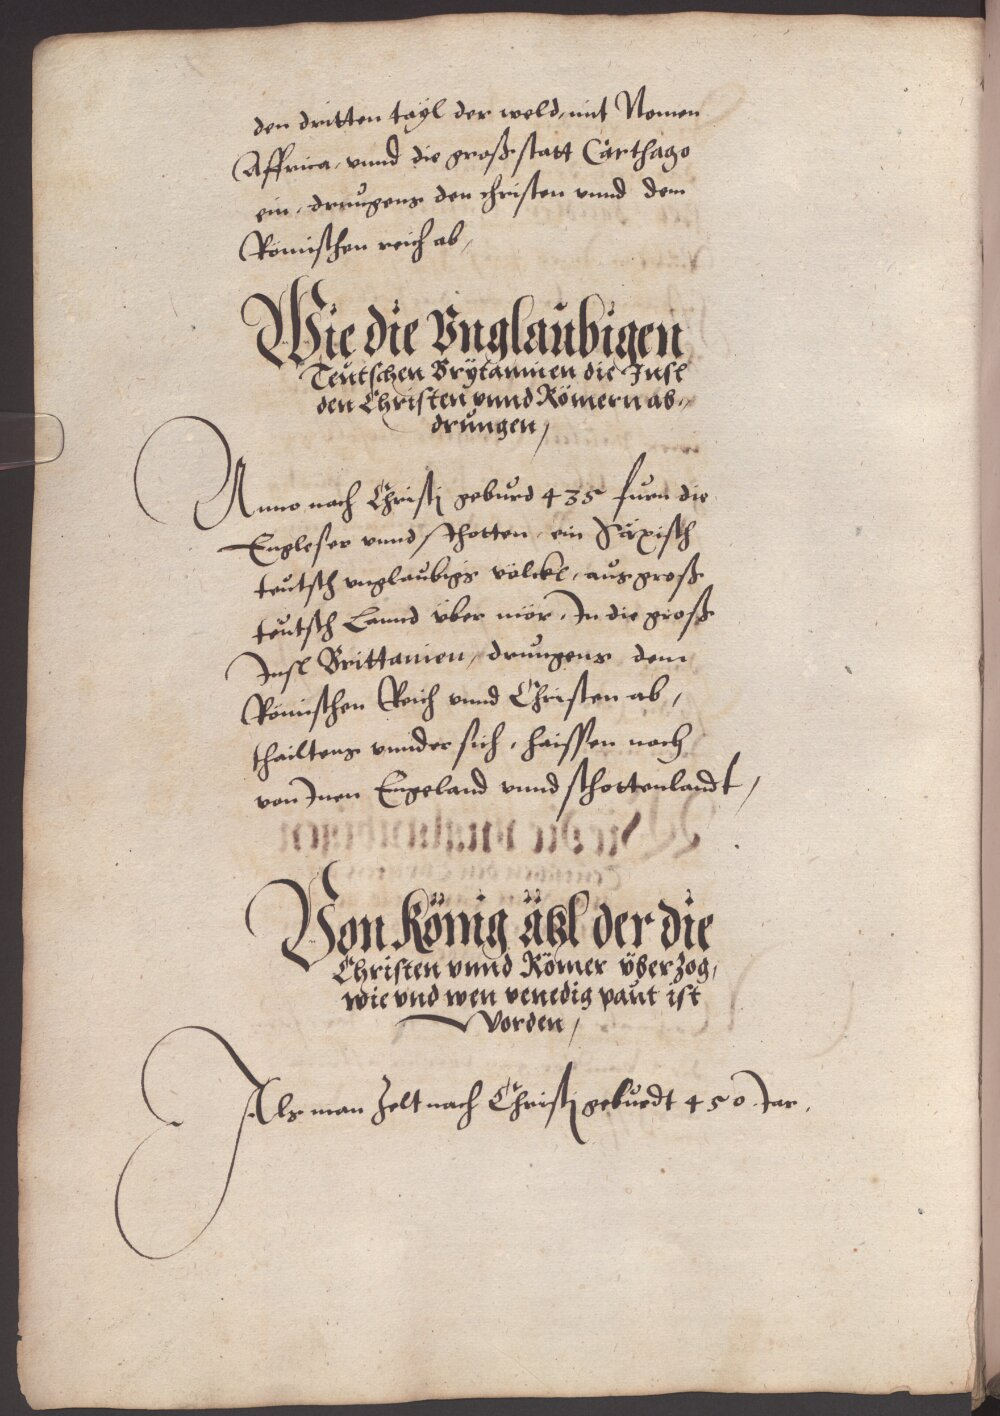 den dritten tayl der weld, mit Namen
Affrica, vnnd die groß statt Carthago
ein, drungens den christen vnnd dem
Römischen reich ab,
Wie die Vnglaubigen
Teutschen Brytannien die Insl
den Christen vnnd Römern ab,
drungen,
Anno nach Christi geburd 435 furn die
Engleser vnnd Schotten, ein Säxisch
teutsch vnglaubigs völckl, aus groß
teutsch Lannd über mör, In die groß
Insl Brittanien, drungens dem
Römischen Reich vnnd Christen ab,
thailtens vnnder sich, haissen noch
von Inen Engeland vnnd schottenlandt,
Von König ätzl der die
Christen vnnd Römer überzog,
wie vnd wen venedig paut ist
worden,
Als man zelt nach Christi gebuedt 450 Jar,